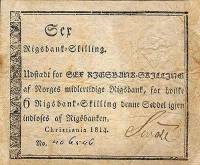 Sex
Rigsbank-Skilling.
Udstedt for SEX RIGSBANK-SKILLING
af Norges midlertidige Rigsbank, for hvilke
6 Rigsbank-Skilling denne Seddel igien
indløses af Rigsbanken.
Christiania 1814.
No.